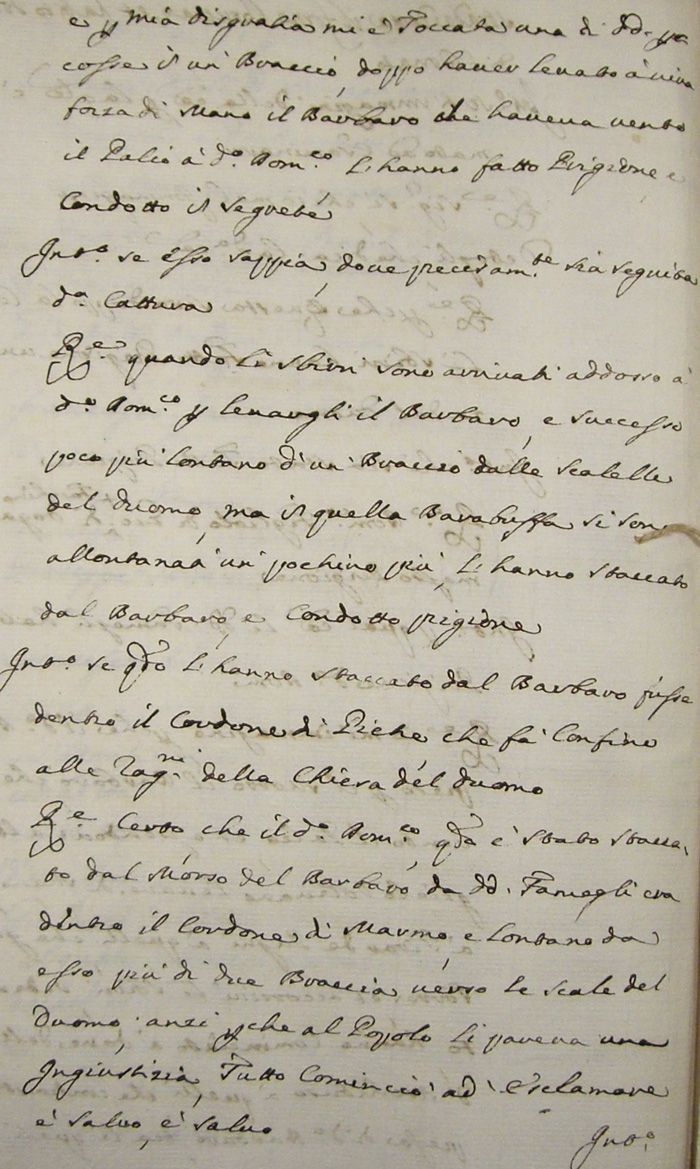 e p mia disgratia mi è Toccata una di dd. p
cosse i un' Braccio, doppo haver levato à viva
forza di Mano il Barbaro che haveva vento
il Palio à d.o Dom.co L'hanno fatto Prigione e
Condotto i Segrete
Int.o se esso sappia, dove precisam.te sia seguita
d.a Cattura
R.e quando li sbirri sono arrivati addosso à
d.o Dom.co p levargli il Barbaro, e successo
poco più lontano d'un' Braccio dalle Scalelle
del Duomo, ma i quella Barabuffa si son
allontanati un' pochino più, L'hanno staccato
dal Barbaro, e Condotto prigione
Int.o se qdo L'hanno staccato dal Barbaro fusse
dentro il Cordone di Piche che fà Confino
alle Rag.ni della Chiesa del Duomo
R.e Certo che il d.o Dom.co qdo è stato stacca,
to dal Morso del Barbaro da dd. Famegli era
dentro il Cordone di Marmo, e Lontano da
esso più di due Braccia verso le scale del
Duomo anzi pche al Popolo li pareva una
Ingiustizia, Tutto Cominciò ad' esclamare
è salvo, è salvo
Int.o